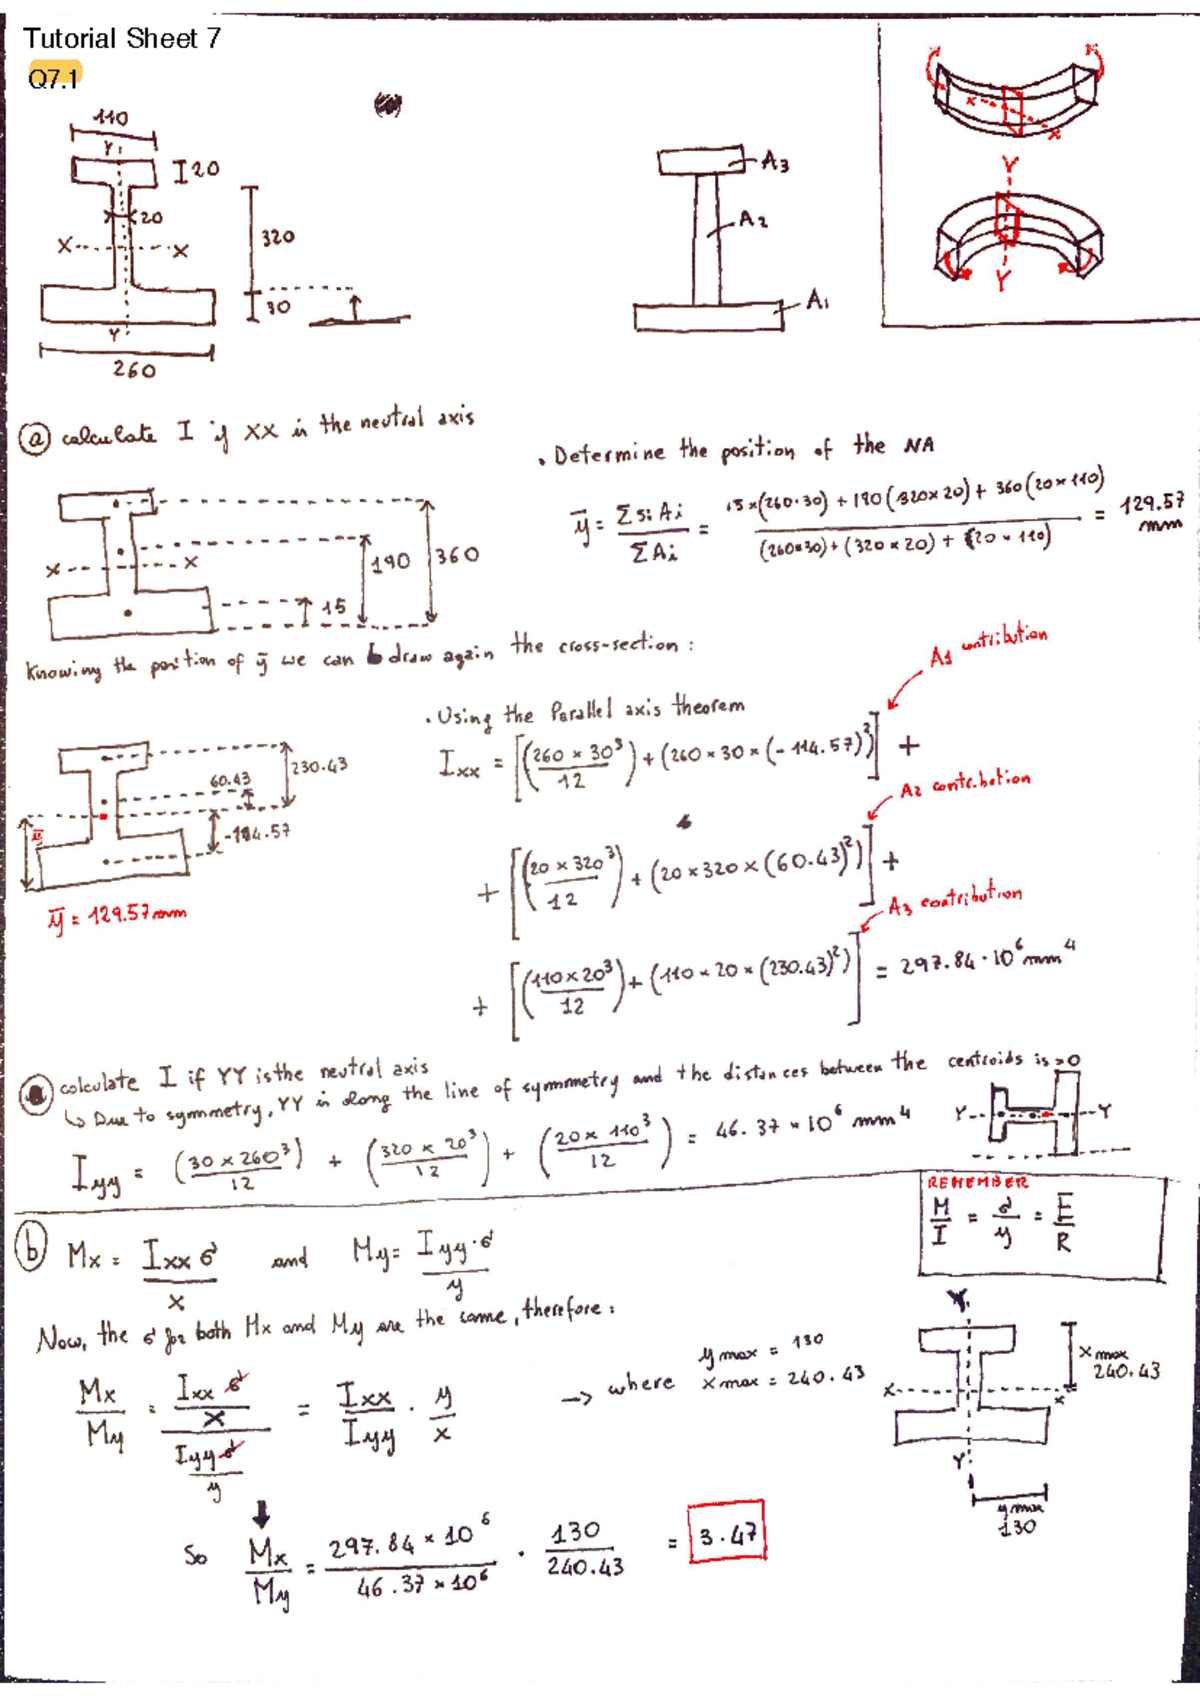 Tutorial Sheet 7
Q7.1
110
Y
20
20
X X
320
30
Y
260
A3
A2
A1
x x
Y
Y
(a) calculate I if XX is the neutral axis
. Determine the position of the NA
ȳ = Σsi Ai / ΣAi = 15×(260·30) + 190(320×20) + 360(20×110) / (260×30) + (320×20) + (20×110) = 129.57 mm
x x
190
360
15
Knowing the position of ȳ we can draw again the cross-section:
. Using the Parallel axis theorem
A1 contribution
Ixx = [(260 × 30³ / 12) + (260 × 30 × (-114.57)²)] +
230.43
60.43
-114.57
ȳ
ȳ = 129.57 mm
A2 contribution
+ [(20 × 320³ / 12) + (20 × 320 × (60.43)²)] +
A3 contribution
+ [(110 × 20³ / 12) + (110 × 20 × (230.43)²)] = 297.84 · 10⁶ mm⁴
calculate I if YY is the neutral axis
↳ Due to symmetry, YY is along the line of symmetry and the distances between the centroids is = 0
Iyy = (30 × 260³ / 12) + (320 × 20³ / 12) + (20 × 110³ / 12) = 46.37 × 10⁶ mm⁴
Y Y
REMEMBER
M/I = σ/y = E/R
(b) Mx = Ixx σ / x and My = Iyy · σ / y
Now, the σ for both Mx and My are the same, therefore:
Mx / My = (Ixx σ / x) / (Iyy σ / y) = Ixx / Iyy · y / x → where y max = 130
x max = 240.43
Y
x max
240.43
x x
Y
y max
130
So Mx / My = 297.84 × 10⁶ / 46.37 × 10⁶ · 130 / 240.43 = 3.47